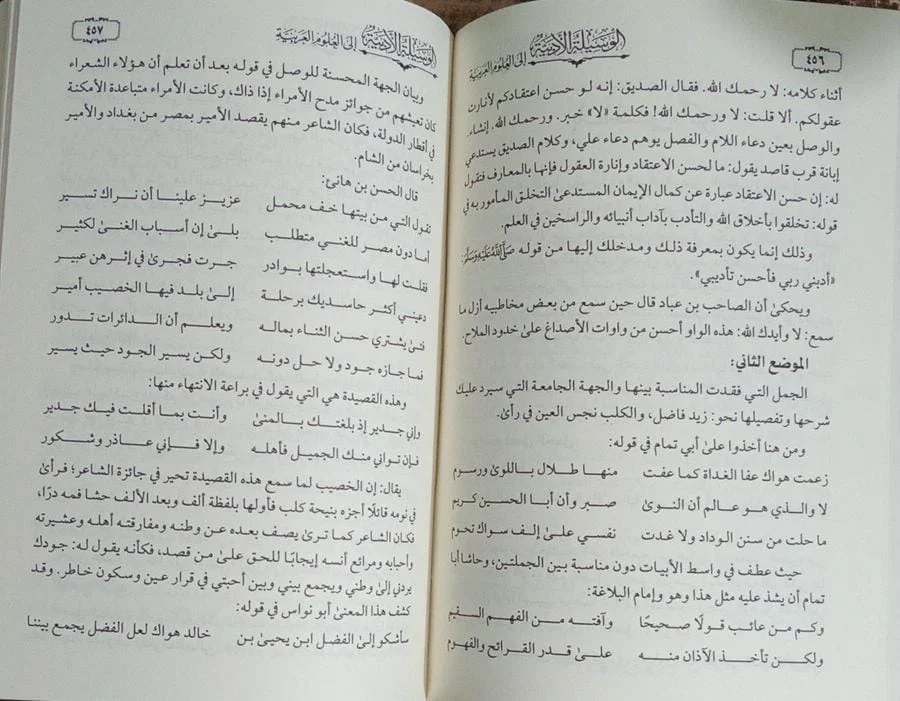 ٤٥٦
الوسيلة الأدبية إلى العلوم العربية
أثناء كلامه: لا رحمك الله. فقال الصديق: إنه لو حسن اعتقادكم لأنارت
عقولكم. ألا قلت: لا ورحمك الله! فكلمة «لا» خبر. ورحمك الله. إنشاء.
والوصل بعين دعاء اللام والفصل يوهم دعاء علي، وكلام الصديق يستدعي
إبانة قرب قاصد يقول: ما لحسن الاعتقاد وإنارة العقول فإنها بالمعارف فنقول
له: إن حسن الاعتقاد عبارة عن كمال الإيمان المستدعىٰ التخلق المأمور به في
قوله: تخلقوا بأخلاق الله والتأدب بآداب أنبيائه والراسخين في العلم.
وذلك إنما يكون بمعرفة ذلك ومدخلك إليها من قوله ﷺ:
«أدبني ربي فأحسن تأديبي».
ويحكىٰ أن الصاحب بن عباد قال حين سمع من بعض مخاطبيه أزل ما
سمع: لا وأيدك الله: هذه الواو أحسن من واوات الأصداغ علىٰ خدود الملاح.
الموضع الثاني:
الجمل التي فقدت المناسبة بينها والجهة الجامعة التي سيرد عليك
شرحها وتفصيلها نحو: زيد فاضل، والكلب نجس العين في رأئ.
ومن هنا أخذوا علىٰ أبي تمام في قوله:
زعمت هواك عفا الغداة كما عفت منها طلال باللوىٰ ورسوم
لا والذي هو عالم أن النوىٰ صبر وأن أبا الحسين كريم
ما حلت من سنن الوداد ولا غدت نفسي علىٰ إلف سواك تحوم
حيث عطف في واسط الأبيات دون مناسبة بين الجملتين، وحاشا أبا
تمام أن يشذ عليه مثل هذا وهو وإمام البلاغة:
وكم من عائب قولًا صحيحًا وآفته من الفهم السقيم
ولكن تأخذ الآذان منه علىٰ قدر القرائح والفهوم
٤٥٧
الوسيلة الأدبية إلى العلوم العربية
وبيان الجهة المحسنة للوصل في قوله بعد أن تعلم أن هؤلاء الشعراء
كان تعيشهم من جوائز مدح الأمراء إذا ذاك، وكانت الأمراء متباعدة الأمكنة
في أقطار الدولة، فكان الشاعر منهم يقصد الأمير بمصر من بغداد والأمير
بخراسان من الشام.
قال الحسن بن هانئ:
تقول التي من بيتها خف محمل عزيز علينا أن نراك تسير
أما دون مصر للغني متطلب بلىٰ إن أسباب الغنىٰ لكثير
فقلت لها واستعجلتها بوادر جرت فجرىٰ في إثرهن عبير
دعيني أكثر حاسديك برحلة إلىٰ بلد فيها الخصيب أمير
فتىٰ يشتري حسن الثناء بماله ويعلم أن الدائرات تدور
فما جازه جود ولا حل دونه ولكن يسير الجود حيث يسير
وهذه القصيدة هي التي يقول في براعة الانتهاء منها:
وإني جدير إذ بلغتك بالمنىٰ وأنت بما أقلت فيك جدير
فإن تواني منك الجميل فأهله وإلا فإني عاذر وشكور
يقال: إن الخصيب لما سمع هذه القصيدة تحير في جائزة الشاعر؛ فرأىٰ
في نومه قائلًا أجزه بنيحة كلب فأولها بلفظة ألف وبعد الألف حشا فمه درًا،
فكان الشاعر كما ترىٰ يصف بعده عن وطنه ومفارقته أهله وعشيرته
وأحبابه ومرائع أنسه إيجابًا للحق علىٰ من قصد، فكأنه يقول له: جودك
يردني إلىٰ وطني ويجمع بيني وبين أحبتي في قرار عين وسكون خاطر. وقد
كشف هذا المعنىٰ أبو نواس في قوله:
سأشكو إلىٰ الفضل ابن يحيىٰ بن خالد هواك لعل الفضل يجمع بيننا